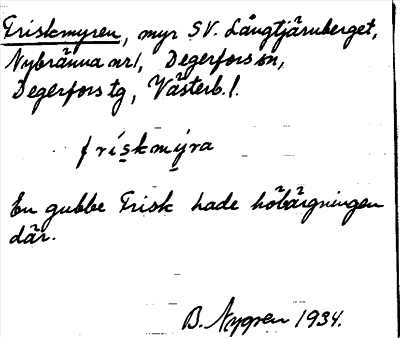 Friskmyren, myr SV. Långtjärnberget,
Nybränna nr 1, Degerfors sn,
Degerfors tg, Västerb. l.
frískmýra
En gubbe Frisk hade höbärgningen
där.
B. Nygren 1934.